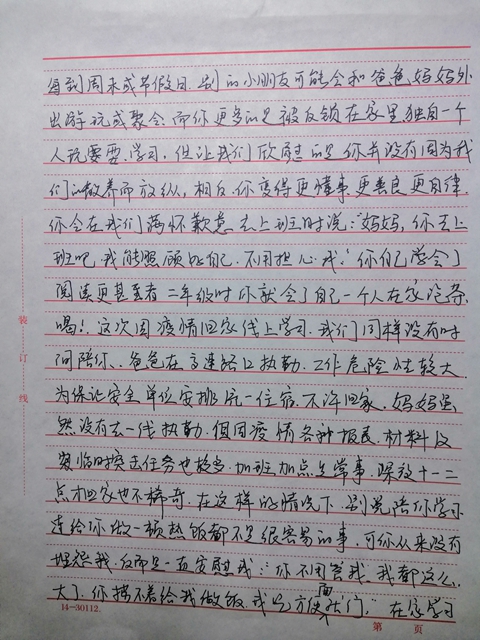 每到周末或节假日，别的小朋友可能会和爸爸妈妈外
出游玩或聚会，而你更多的是被反锁在家里独自一个
人玩耍、学习。但让我们欣慰的是你并没有因为我
们的教养而放纵，相反你变得更懂事更善良更自律
你会在我们满怀歉意去上班时说："妈妈，你去上
班吧，我能照顾好自己，不用担心我！"你自己学会了
阅读更甚至者二年级时你就会了自己一个人在家泡茶
喝！这次因疫情回家线上学习，我们同样没有时
间陪你、爸爸在高速路口执勤，工作危险性较大
为保证安全单位安排统一住宿，不许回家，妈妈虽
然没有去一线执勤，但因疫情各种报表、材料及
紧临时突击任务也较多，加班加点是常事，深夜十一二
点才回家也不稀奇，在这样的情况下，别说陪你学习
连给你做一顿热饭都不是很容易的事，可你从来没有
埋怨我，反而是一直安慰我："你不用管我，我都这么
大了，你操不着给我做饭，我吃方便面就行。"在家学习
装 订 线
14-30112
第 页